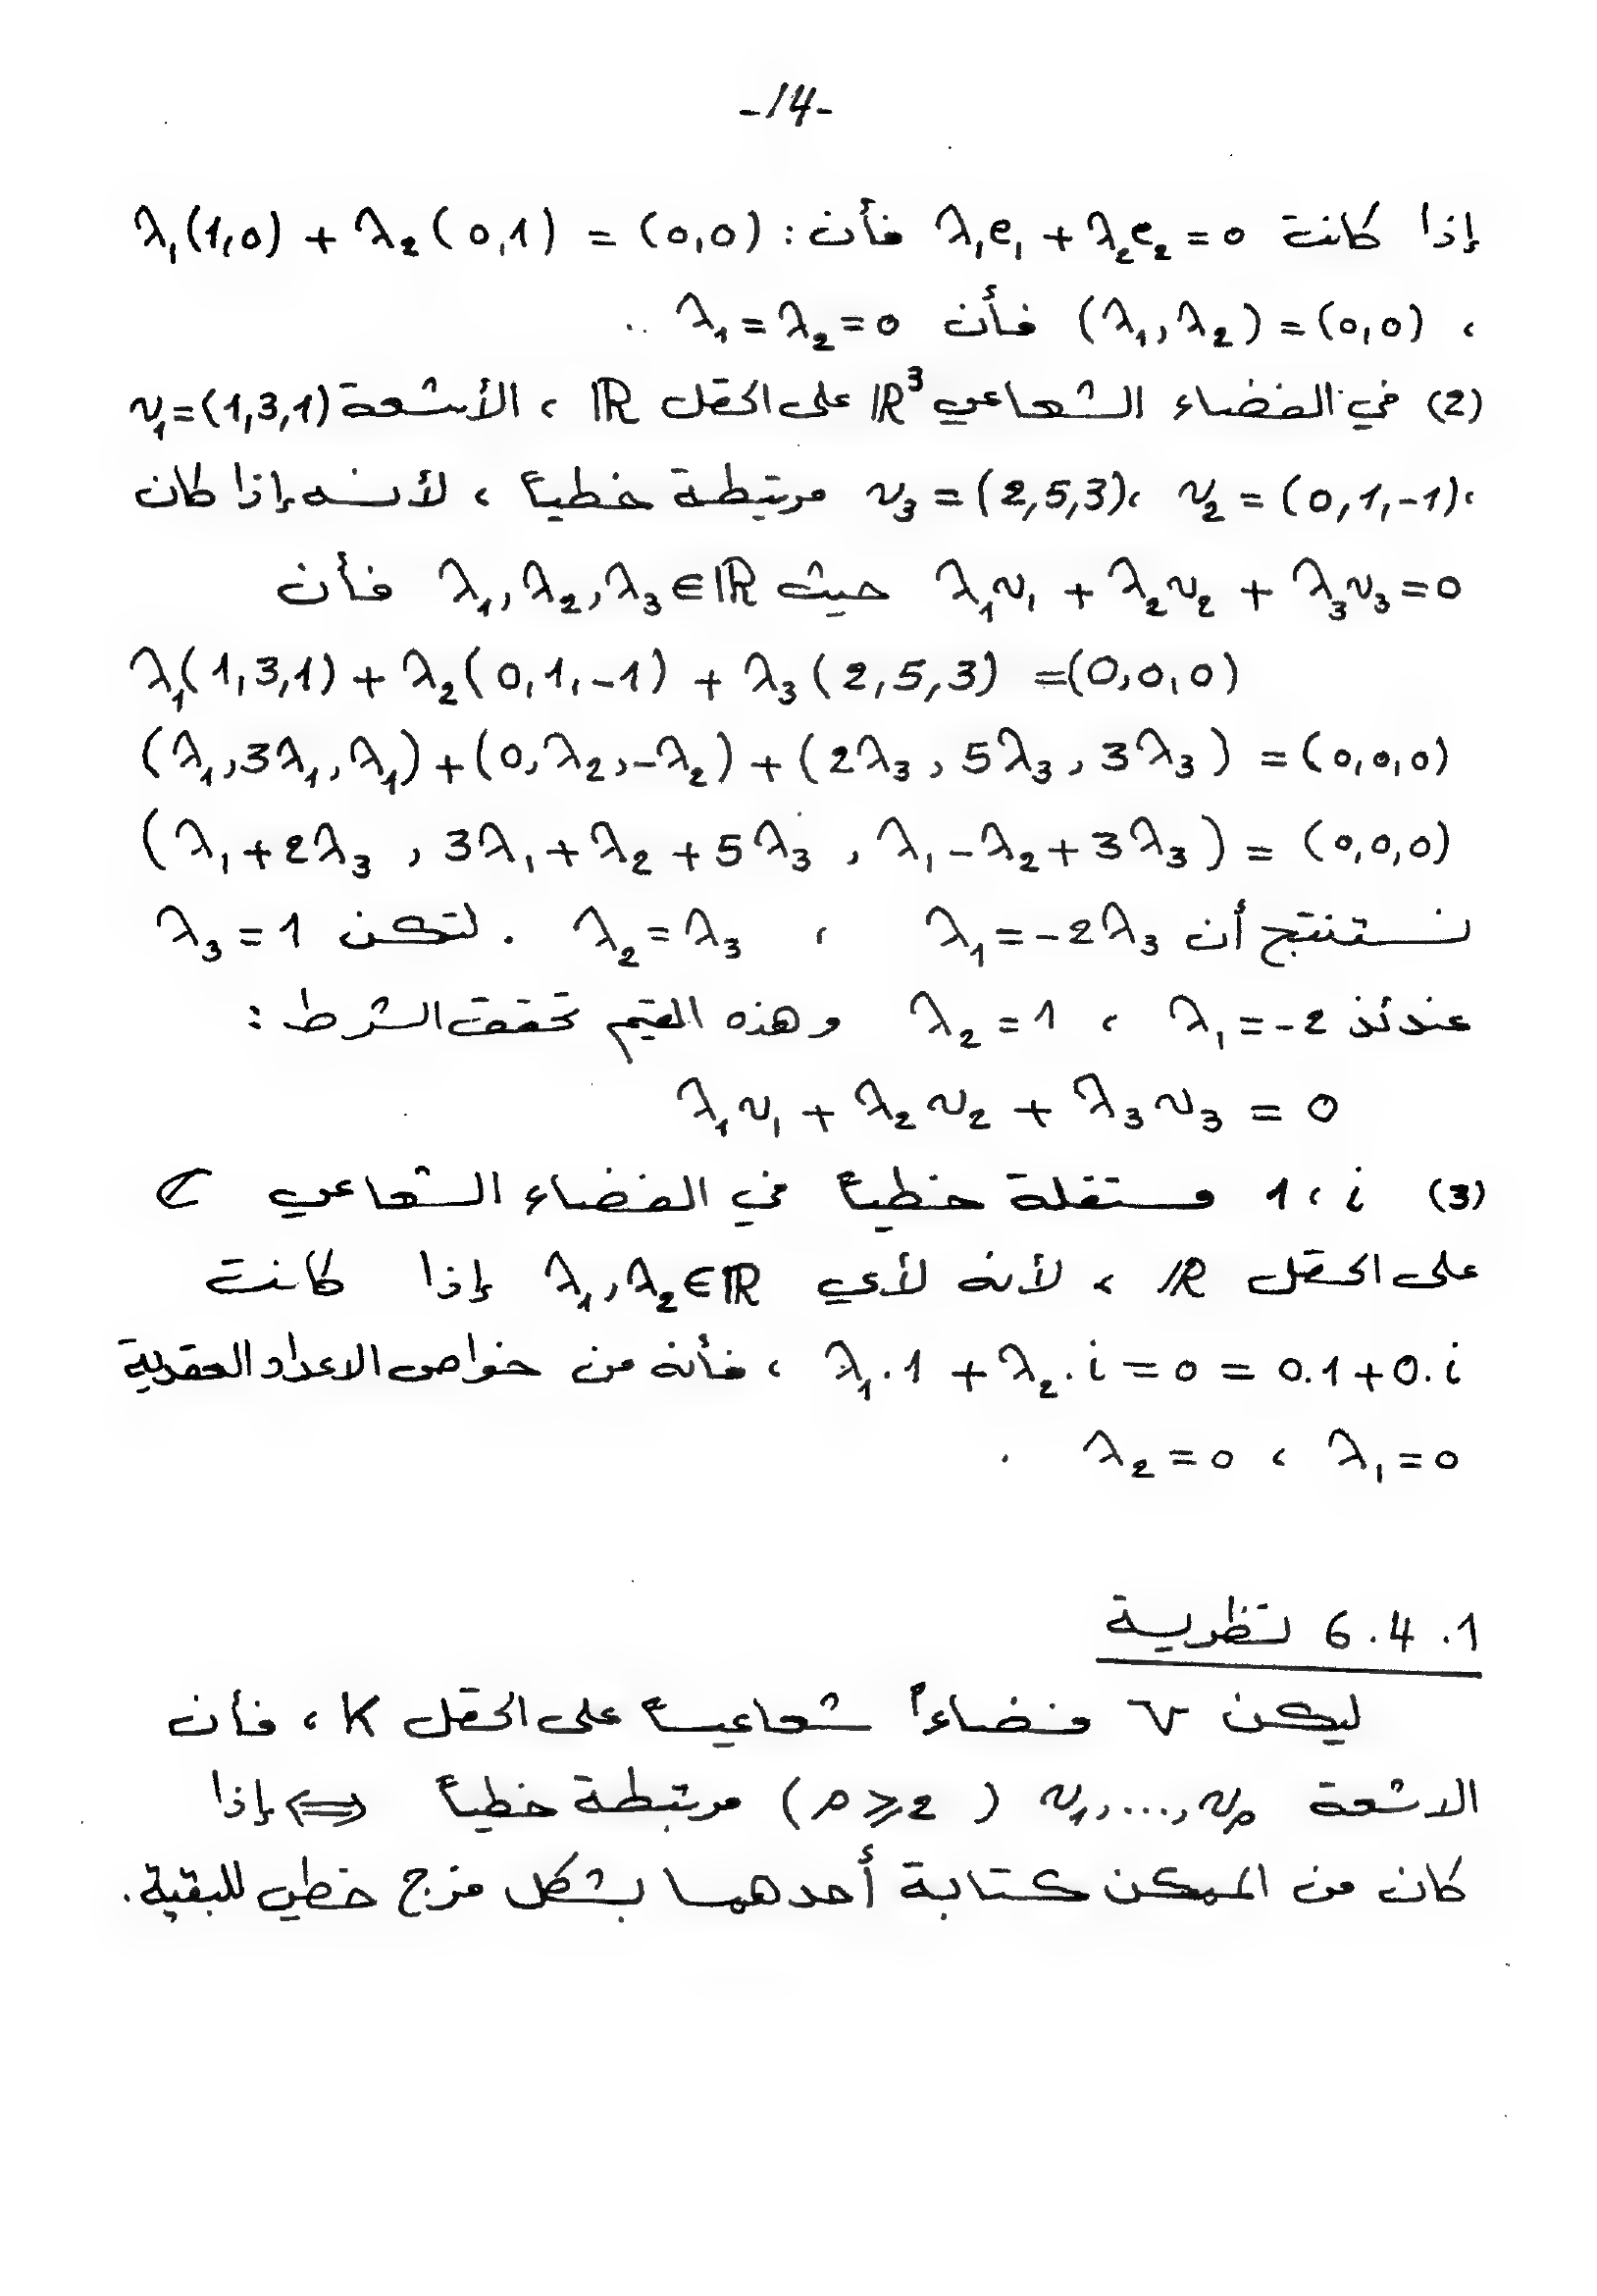 -14-
إذا كانت λ₁e₁ + λ₂e₂ = 0 فأن : λ₁(1,0) + λ₂(0,1) = (0,0)
، (λ₁, λ₂) = (0,0) فأن λ₁ = λ₂ = 0 .
(2) في الفضاء الشعاعي ℝ³ على الحقل ℝ ، الأشعة v₁ = (1,3,1)
، v₂ = (0,1,-1) ، v₃ = (2,5,3) مرتبطة خطياً ، لأنه إذا كان
λ₁v₁ + λ₂v₂ + λ₃v₃ = 0 حيث λ₁, λ₂, λ₃ ∈ ℝ فأن
λ₁(1,3,1) + λ₂(0,1,-1) + λ₃(2,5,3) = (0,0,0)
(λ₁, 3λ₁, λ₁) + (0, λ₂, -λ₂) + (2λ₃, 5λ₃, 3λ₃) = (0,0,0)
(λ₁ + 2λ₃ , 3λ₁ + λ₂ + 5λ₃ , λ₁ - λ₂ + 3λ₃) = (0,0,0)
نستنتج أن λ₁ = -2λ₃ ، λ₂ = λ₃ . لتكن λ₃ = 1
عندئذ λ₁ = -2 ، λ₂ = 1 وهذه القيم تحقق الشرط :
λ₁v₁ + λ₂v₂ + λ₃v₃ = 0
(3) i ، 1 مستقلة خطياً في الفضاء الشعاعي ℂ
على الحقل ℝ ، لأنه لأي λ₁, λ₂ ∈ ℝ إذا كانت
λ₁.1 + λ₂.i = 0 = 0.1 + 0.i ، فأنه من خواص الاعداد العقدية
λ₁ = 0 ، λ₂ = 0 .
6.4.1 نظرية
ليكن V فضاءاً شعاعياً على الحقل K ، فأن
الاشعة v₁, ..., vₚ (p ≥ 2) مرتبطة خطياً ⇔ إذا
كان من الممكن كتابة أحدهما بشكل مزج خطي للبقية.